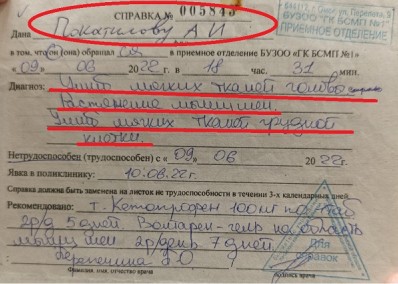 СПРАВКА № 005843
644112, г. Омск, ул. Перелета, 9
БУЗОО "ГК БСМП №1"
ПРИЕМНОЕ ОТДЕЛЕНИЕ
Дана Покатилову А И
в том, что он (она) обращал ся в приемное отделение БУЗОО «ГК БСМП №1»
«09» 06 2022 г. в 18 час. 31 мин.
Диагноз: Ушиб мягких тканей головы
Растяжение мышц шеи.
Ушиб мягких тканей грудной
клетки.
Нетрудоспособен (трудоспособен) с «09» 06 2022г.
Явка в поликлинику: 10.06.22г.
Справка должна быть заменена на листок не трудоспособности в течении 3-х календарных дней.
Рекомендовано: т. Кетопрофен 100мг по 1таб
2р/д 5 дней Вольтарен-гель на область
мышц шеи 2р/день 7 дней
Для справок
Фамилия, имя, отчество врача
подпись врача